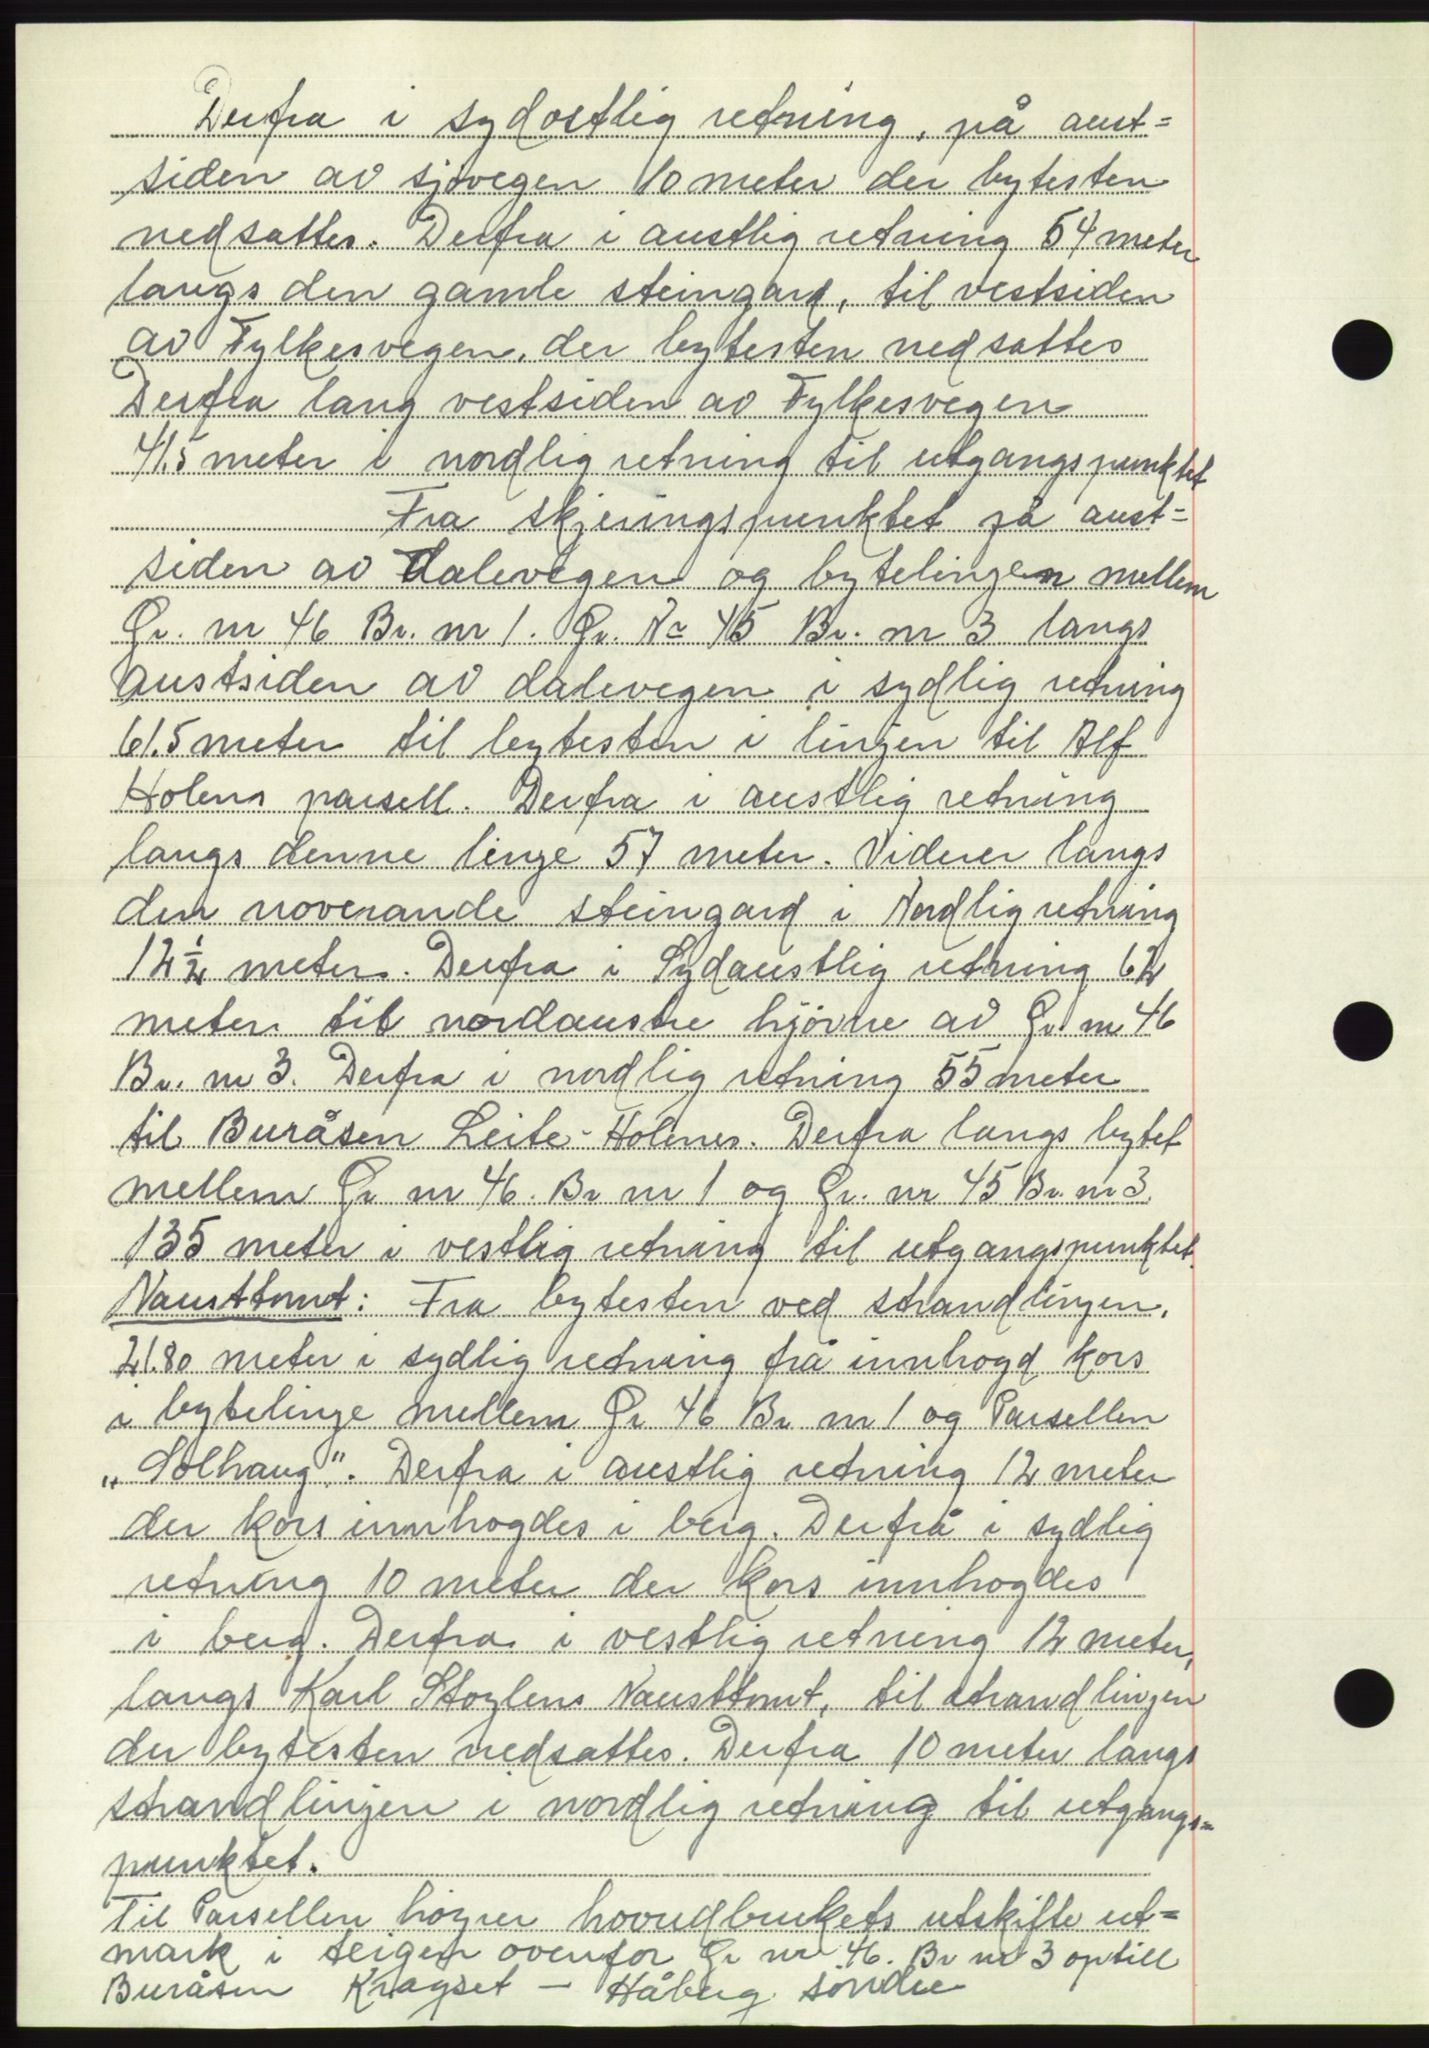 Derfra i sydostlig retning, på aust=
siden av sjøvegen 10 meter der bytesten
nedsattes. Derfra i austlig retning 54 meter
langs den gamle steingard, til vestsiden
av Fylkesvegen, der bytesten nedsattes
Derfra lang vestsiden av Fylkesvegen
41.5 meter i nordlig retning til utgangspunktet
Fra skjeringspunktet på aust=
siden av Dalevegen og bytelingen mellem
Gr. nr 46 Br. nr 1. Gr. Nr 45 Br. nr 3 langs
austsiden av dalevegen i sydlig retning
61.5 meter til bytesten i linjen til Alf
Holens parsell. Derfra i austlig retning
langs denne linje 57 meter. Viderer langs
den noverande steingard i Nordlig retning
12 1/2 meter. Derfra i Sydaustlig retning 62
meter til nordaustre hjørne av Gr nr 46
Br. nr 3. Derfra i nordlig retning 55 meter
til Buråsen Leite-Holenes. Derfra langs bytet
mellem Gr nr 46. Br nr 1 og Gr. nr 45 Br. nr 3.
135 meter i vestlig retning til utgangspunktet.
Nausttomt: Fra bytesten ved strandlinjen,
21.80 meter i sydlig retning frå innhogd kors
i bytelinje mellem Gr 46 Br nr 1 og Parsellen
„Solhaug". Derfra i austlig retning 12 meter
der kors innhogdes i berg. Derfrå i sydlig
retning 10 meter der kors innhogdes
i berg. Derfra i vestlig retning 12 meter,
langs Karl Støylens Nausttomt, til strandlinjen
der bytesten nedsattes. Derfra 10 meter langs
strandlinjen i nordlig retning til utgangs=
punktet.
Til Parsellen høyrer hovudbrukets utskifte ut=
mark i teigen ovenfor Gr nr 46. Br nr 3 optill
Buråsen Kragset — Håberg søndre